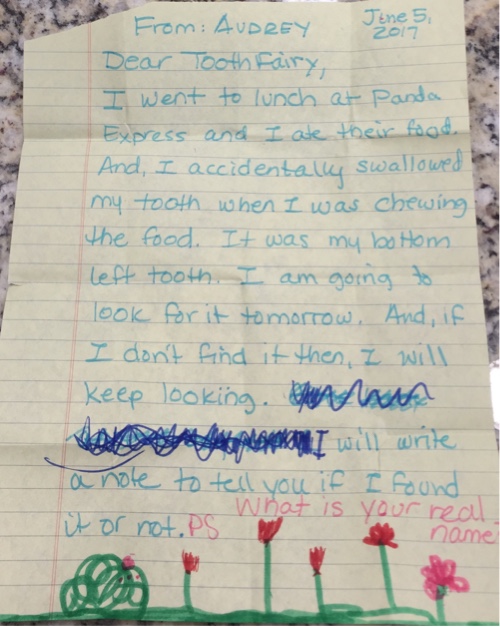 From: AUDREY
June 5,
2017
Dear Tooth Fairy,
I went to lunch at Panda
Express and I ate their food.
And, I accidentally swallowed
my tooth when I was chewing
the food. It was my bottom
left tooth. I am going to
look for it tomorrow. And, if
I don't find it then, I will
keep looking.
I will write
a note to tell you if I found
it or not. PS What is your real
name